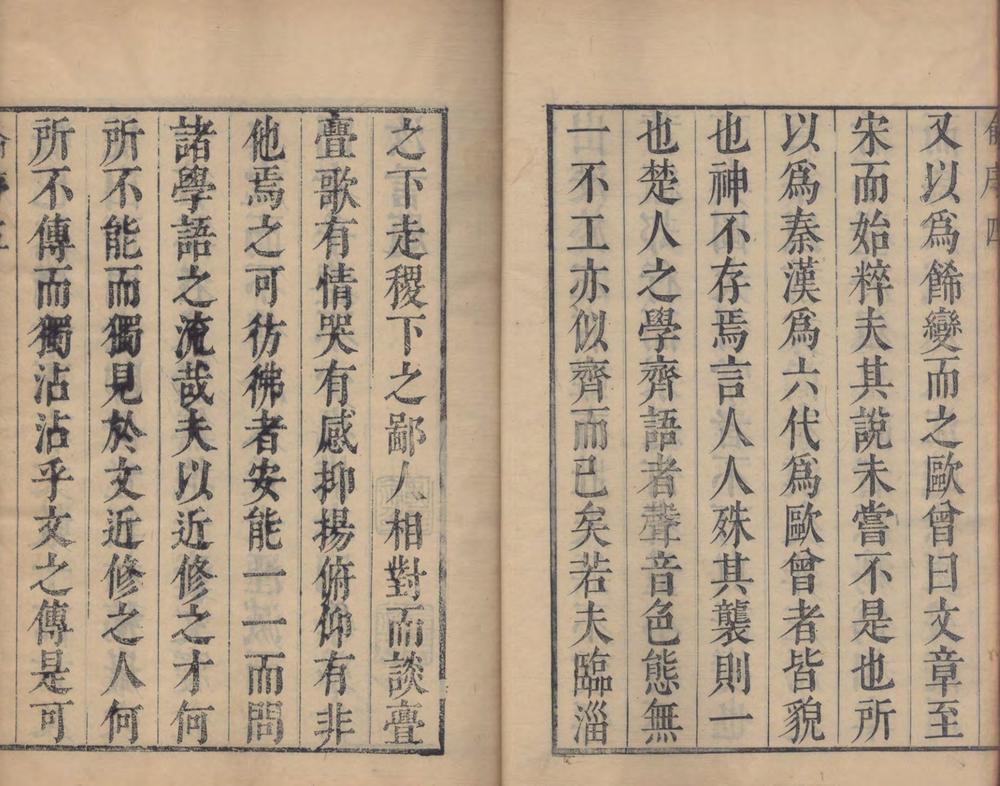 又以爲餙變而之歐曾曰文章至
宋而始粹夫其說未嘗不是也所
以爲秦漢爲六代爲歐曾者皆貌
也神不存焉言人人殊其襲則一
也楚人之學齊語者聲音色態無
一不工亦似齊而已矣若夫臨淄
之下走稷下之鄙人相對而談亹
亹歌有情哭有感抑揚俯仰有非
他焉之可彷彿者安能一一而問
諸學語之流哉夫以近修之才何
所不能而獨見於文近修之人何
所不傳而獨沾沾乎文之傳是可